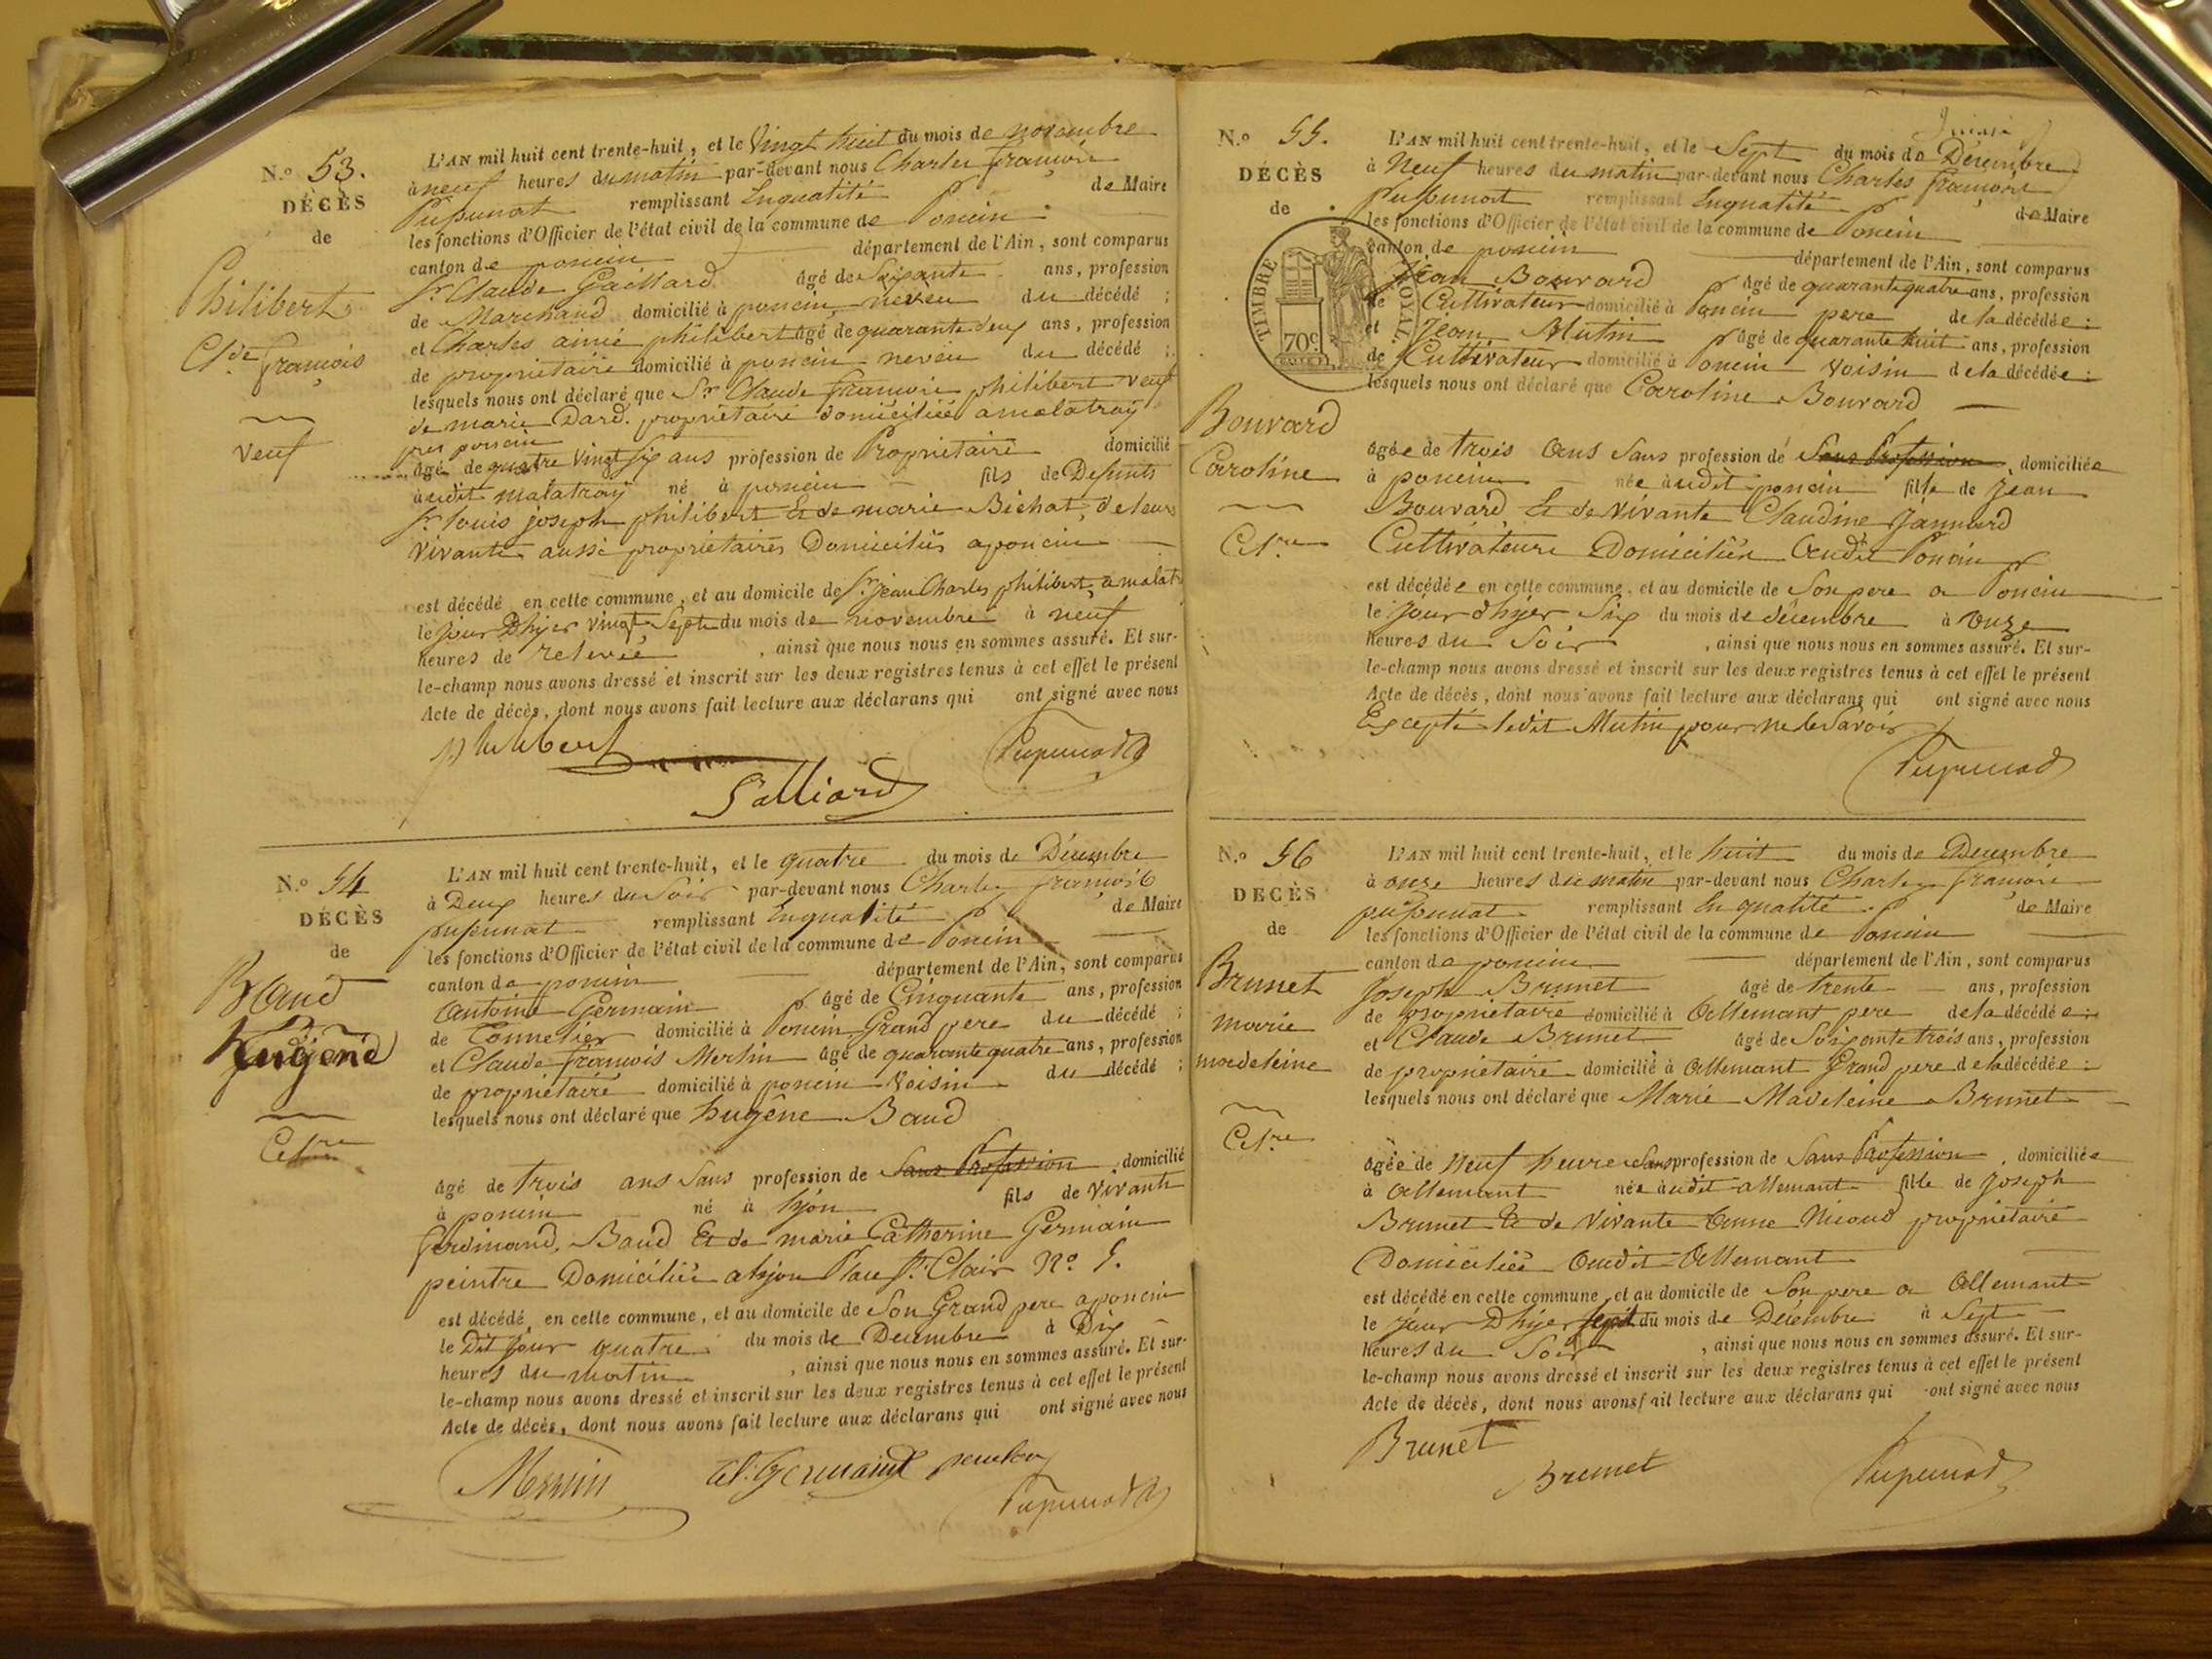 N.o 53.
DÉCÈS
de
Philibert
Cl.de françois
veuf
L'AN mil huit cent trente-huit, et le Vingt huit du mois de novembre
à neuf heures du matin par-devant nous Charles françois
Pupunat remplissant Enqualité de Maire
les fonctions d'Officier de l'état civil de la commune de Poncin
canton de poncin département de l'Ain, sont comparus
Sr. Claude Gaillard âgé de Soixante ans, profession
de Marchand domicilié à poncin neveu du décédé ;
et Charles aimé philibert âgé de quarante deux ans, profession
de propriétaire domicilié à poncin neveu du décédé ;
lesquels nous ont déclaré que Sr Claude françois philibert veuf
de marie Dard. propriétaire domiciliée a malatray
pres poncin
âgé de quatre Vingt Six ans profession de Propriétaire domicilié
audit malatray né à poncin fils de Defunts
Sr. louis joseph philibert Et de marie Bichat, de leurs
vivants aussi propriétaires Domiciliés a poncin
est décédé en cette commune, et au domicile de Sr. jean Charles philibert, a malatr
le jour D'hyer vingt Sept du mois de novembre à neuf
heures de relevée , ainsi que nous nous en sommes assuré. Et sur-
le-champ nous avons dressé et inscrit sur les deux registres tenus à cet effet le présent
Acte de décès, dont nous avons fait lecture aux déclarans qui ont signé avec nous
philibert
Pupunat
Galliard
N.o 54
DÉCÈS
de
Baud
hugène
Cel.re
L'AN mil huit cent trente-huit, et le quatre du mois de Décembre
à Deux heures du Soir par-devant nous Charles françois
pupunat remplissant Enqualité de Maire
les fonctions d'Officier de l'état civil de la commune de Poncin
canton de poncin département de l'Ain, sont comparus
Antoine Germain âgé de Cinquante ans, profession
de Tonnelier domicilié à Poncin Grand pere du décédé ;
et Claude françois Merlin âgé de quarante quatre ans, profession
de propriétaire domicilié à poncin Voisin du décédé ;
lesquels nous ont déclaré que hugène Baud
âgé de trois ans Sans profession de Sans Profession , domicilié
à poncin né à lyon fils de Vivants
ferdinand, Baud Et de marie Catherine Germain
peintre Domiciliés a lyon Place St. Clair No. 5.
est décédé en cette commune, et au domicile de Son Grand pere a poncin
le Dit jour quatre du mois de Decembre à Dix
heures du matin , ainsi que nous nous en sommes assuré. Et sur-
le-champ nous avons dressé et inscrit sur les deux registres tenus à cet effet le présent
Acte de décès, dont nous avons fait lecture aux déclarans qui ont signé avec nous
Merlin
Germain
Pupunat
N.o 55.
DÉCÈS
de
TIMBRE ROYAL
70c
Bouvard
Caroline
Cel.re
L'AN mil huit cent trente-huit, et le Sept du mois de Décembre
à Neuf heures du matin par-devant nous Charles françois
Pupunat remplissant Enqualité de Maire
les fonctions d'Officier de l'état civil de la commune de Poncin
canton de poncin département de l'Ain, sont comparus
Jean Bouvard âgé de quarante quatre ans, profession
de Cultivateur domicilié à Poncin pere de la décédée ;
et Jean Mutin âgé de quarante huit ans, profession
de Cultivateur domicilié à Poncin Voisin de la décédée ;
lesquels nous ont déclaré que Caroline Bouvard
âgée de trois ans Sans profession de Sans Profession , domiciliée
à poncin née audit poncin fille de Jean
Bouvard Et de vivante Claudine Jannard
Cultivateurs Domiciliés audit Poncin
est décédée en cette commune, et au domicile de Son pere a Poncin
le jour d'hyer Six du mois de décembre à onze
heures du Soir , ainsi que nous nous en sommes assuré. Et sur-
le-champ nous avons dressé et inscrit sur les deux registres tenus à cet effet le présent
Acte de décès, dont nous avons fait lecture aux déclarans qui ont signé avec nous
Excepté ledit Mutin pour ne le Savoir
Pupunat
N.o 56
DÉCÈS
de
Brunet
marie
madeleine
Cel.re
L'AN mil huit cent trente-huit, et le huit du mois de Decembre
à onze heures du matin par-devant nous Charles françois
pupunat remplissant En qualité de Maire
les fonctions d'Officier de l'état civil de la commune de Poncin
canton de poncin département de l'Ain, sont comparus
Joseph Brunet âgé de trente ans, profession
de propriétaire domicilié à Allemant pere de la décédée ;
et Claude Brunet âgé de Soixante trois ans, profession
de propriétaire domicilié à Allemant Grand pere de la décédée ;
lesquels nous ont déclaré que Marie Madeleine Brunet
âgée de Neuf heures Sans profession de Sans Profession , domiciliée
à Allemant née audit allemant fille de Joseph
Brunet Et de Vivante Anne Nicoud propriétaire
Domiciliés audit Allemant
est décédé en cette commune et au domicile de Son pere a Allemant
le jour D'hyer Sept du mois de Décembre à Sept
heures du Soir , ainsi que nous nous en sommes assuré. Et sur-
le-champ nous avons dressé et inscrit sur les deux registres tenus à cet effet le présent
Acte de décès, dont nous avons fait lecture aux déclarans qui ont signé avec nous
Brunet
Brunet
Pupunat